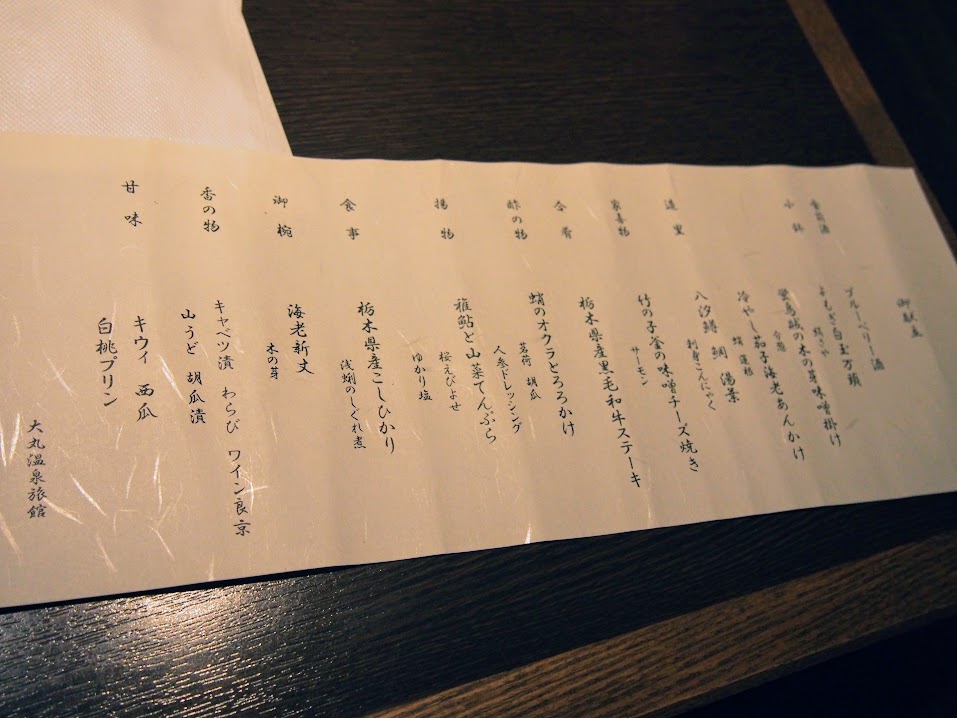 御献立
食前酒
ブルーベリー酒
小鉢
よもぎ白玉万頭
絹さや
蛍烏賊の木の芽味噌掛け
冷やし茄子海老あんかけ
造里
八汐鱒 鯛 湯葉
刺身こんにゃく
家喜物
竹の子釜の味噌チーズ焼き
サーモン
合肴
栃木県産黒毛和牛ステーキ
酢の物
蛸のオクラとろろかけ
茗荷 胡瓜
人参ドレッシング
揚物
稚鮎と山菜てんぷら
桜えびよせ
ゆかり塩
食事
栃木県産こしひかり
浅蜊のしぐれ煮
御椀
海老新丈
木の芽
香の物
キャベツ漬 わらび ワイン良京
山うど 胡瓜漬
甘味
キウィ 西瓜
白桃プリン
大丸温泉旅館